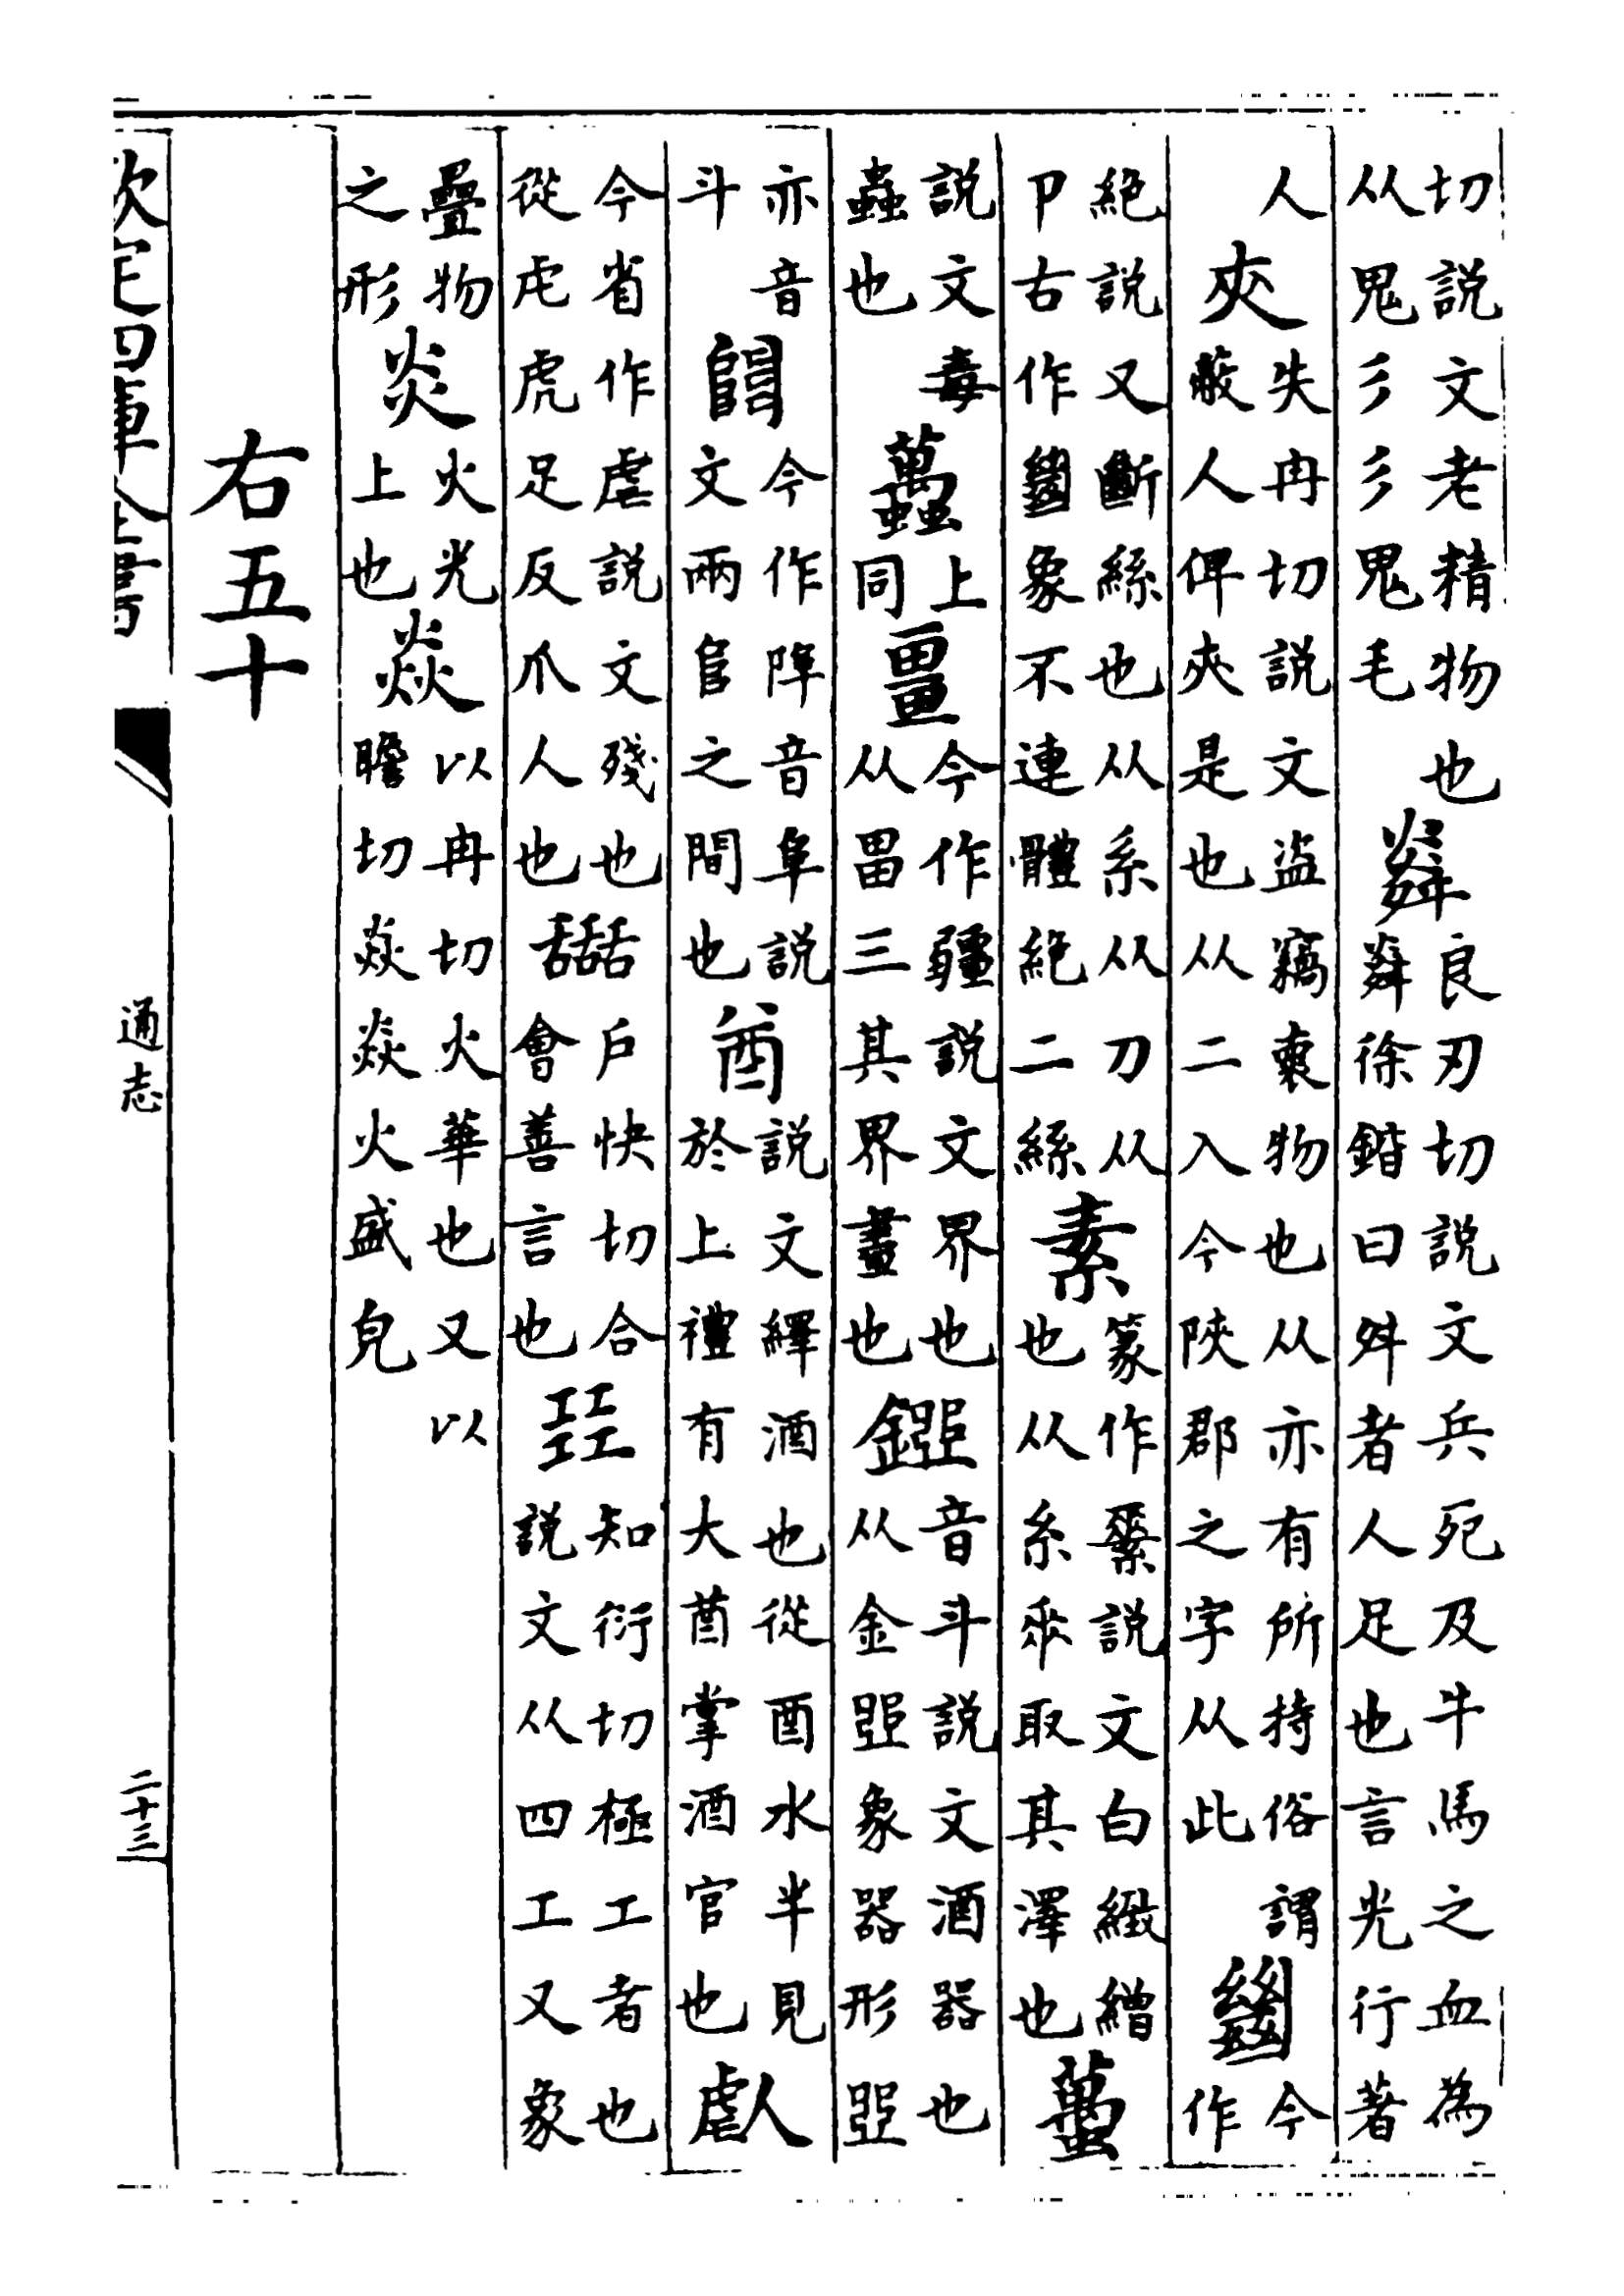 切說文老精物也从鬼彡彡鬼毛粦良刃切說文兵死及牛馬之血為粦徐鍇曰舛者人足也言光行著
人㚒失冉切說文盜竊褱物也从亦有所持俗謂蔽人俾㚒是也从二入今陝郡之字从此𢇍今作
絶說又斷絲也从糸从刀从卩古作𢇍象不連體絶二絲素篆作𦃃說文白緻繒也从糸𠂹取其澤也蠆
說文毒蟲也上同畺今作疆說文界也从畕三其界畫也音斗說文酒器也从金𠁁象器形𠁁
亦音斗𨺅今作音阜說文兩𨸏之間也酋說文繹酒也從酉水半見於上禮有大酋掌酒官也
今省作虐說文殘也從虍虎足反爪人也𦧵戶快切合會善言也㠭知衍切極工者也說文从四工又象
疊物之形炎火光上也焱以冉切火華也又以瞻切焱焱火盛皃
右五十
欽定四庫全書
通志
二十三